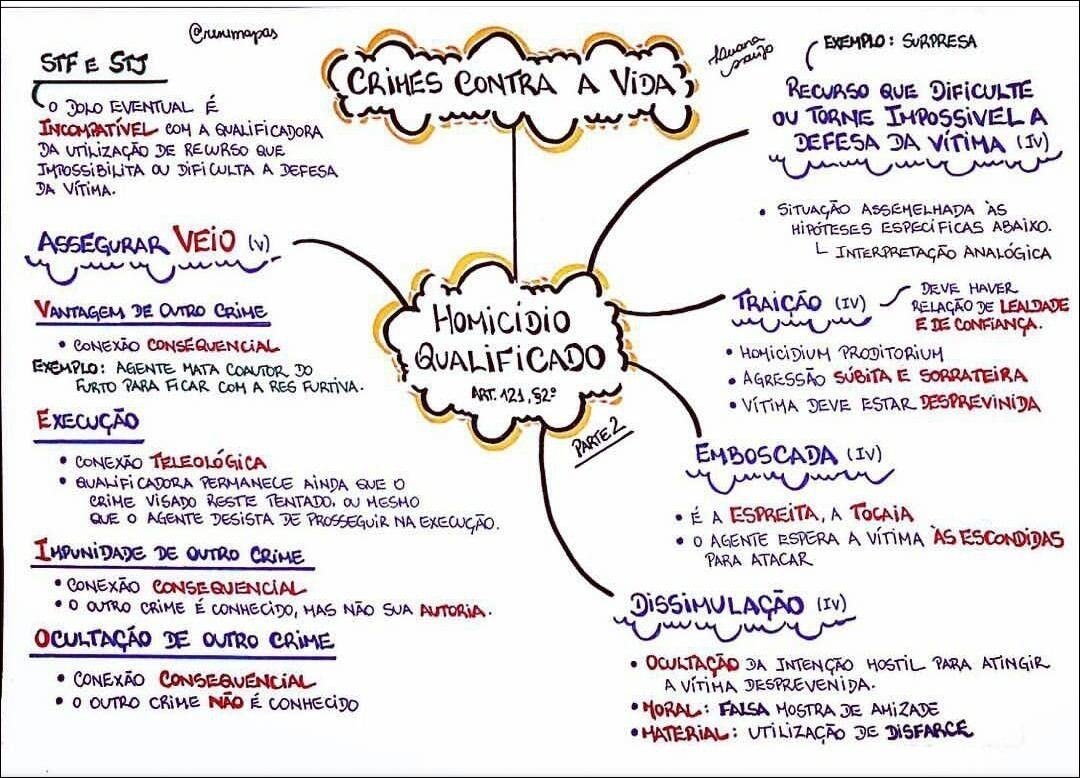 @runimapas
CRIMES CONTRA A VIDA
STF E STJ
O DOLO EVENTUAL É
INCOMPATÍVEL COM A QUALIFICADORA
DA UTILIZAÇÃO DE RECURSO QUE
IMPOSSIBILITA OU DIFICULTA A DEFESA
DA VÍTIMA.
ASSEGURAR VEIO (V)
VANTAGEM DE OUTRO CRIME
• CONEXÃO CONSEQUENCIAL
EXEMPLO: AGENTE MATA COAUTOR DO
FURTO PARA FICAR COM A RES FURTIVA.
EXECUÇÃO
• CONEXÃO TELEOLÓGICA
• QUALIFICADORA PERMANECE AINDA QUE O
CRIME VISADO RESTE TENTADO, OU MESMO
QUE O AGENTE DESISTA DE PROSSEGUIR NA EXECUÇÃO.
IMPUNIDADE DE OUTRO CRIME
• CONEXÃO CONSEQUENCIAL
• O OUTRO CRIME É CONHECIDO, MAS NÃO SUA AUTORIA.
OCULTAÇÃO DE OUTRO CRIME
• CONEXÃO CONSEQUENCIAL
• O OUTRO CRIME NÃO É CONHECIDO
HOMICÍDIO
QUALIFICADO
ART. 121, §2º
PARTE 2
EXEMPLO: SURPRESA
RECURSO QUE DIFICULTE
OU TORNE IMPOSSÍVEL A
DEFESA DA VÍTIMA (IV)
• SITUAÇÃO ASSEMELHADA ÀS
HIPÓTESES ESPECÍFICAS ABAIXO.
INTERPRETAÇÃO ANALÓGICA
TRAIÇÃO (IV)
DEVE HAVER
RELAÇÃO DE LEALDADE
E DE CONFIANÇA.
• HOMICIDIUM PRODITORIUM
• AGRESSÃO SÚBITA E SORRATEIRA
• VÍTIMA DEVE ESTAR DESPREVINIDA
EMBOSCADA (IV)
• É A ESPREITA, A TOCAIA
• O AGENTE ESPERA A VÍTIMA ÀS ESCONDIDAS
PARA ATACAR
DISSIMULAÇÃO (IV)
• OCULTAÇÃO DA INTENÇÃO HOSTIL PARA ATINGIR
A VÍTIMA DESPREVENIDA.
• MORAL: FALSA MOSTRA DE AMIZADE
• MATERIAL: UTILIZAÇÃO DE DISFARCE